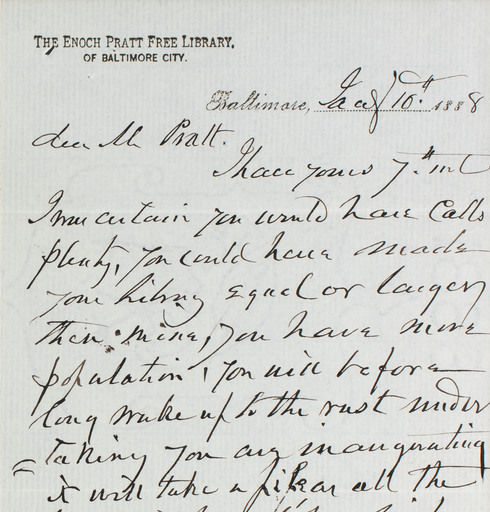 THE ENOCH PRATT FREE LIBRARY,
OF BALTIMORE CITY.
Baltimore, Jany 10th 1888
dear Mr Pratt.
I have yours 7th inst
I am certain you would have Calls
plenty, you could have made
your library equal or larger
then mine, you have more
population, you will before
long wake up to the vast under
taking you are inaugurating
it will take a all the